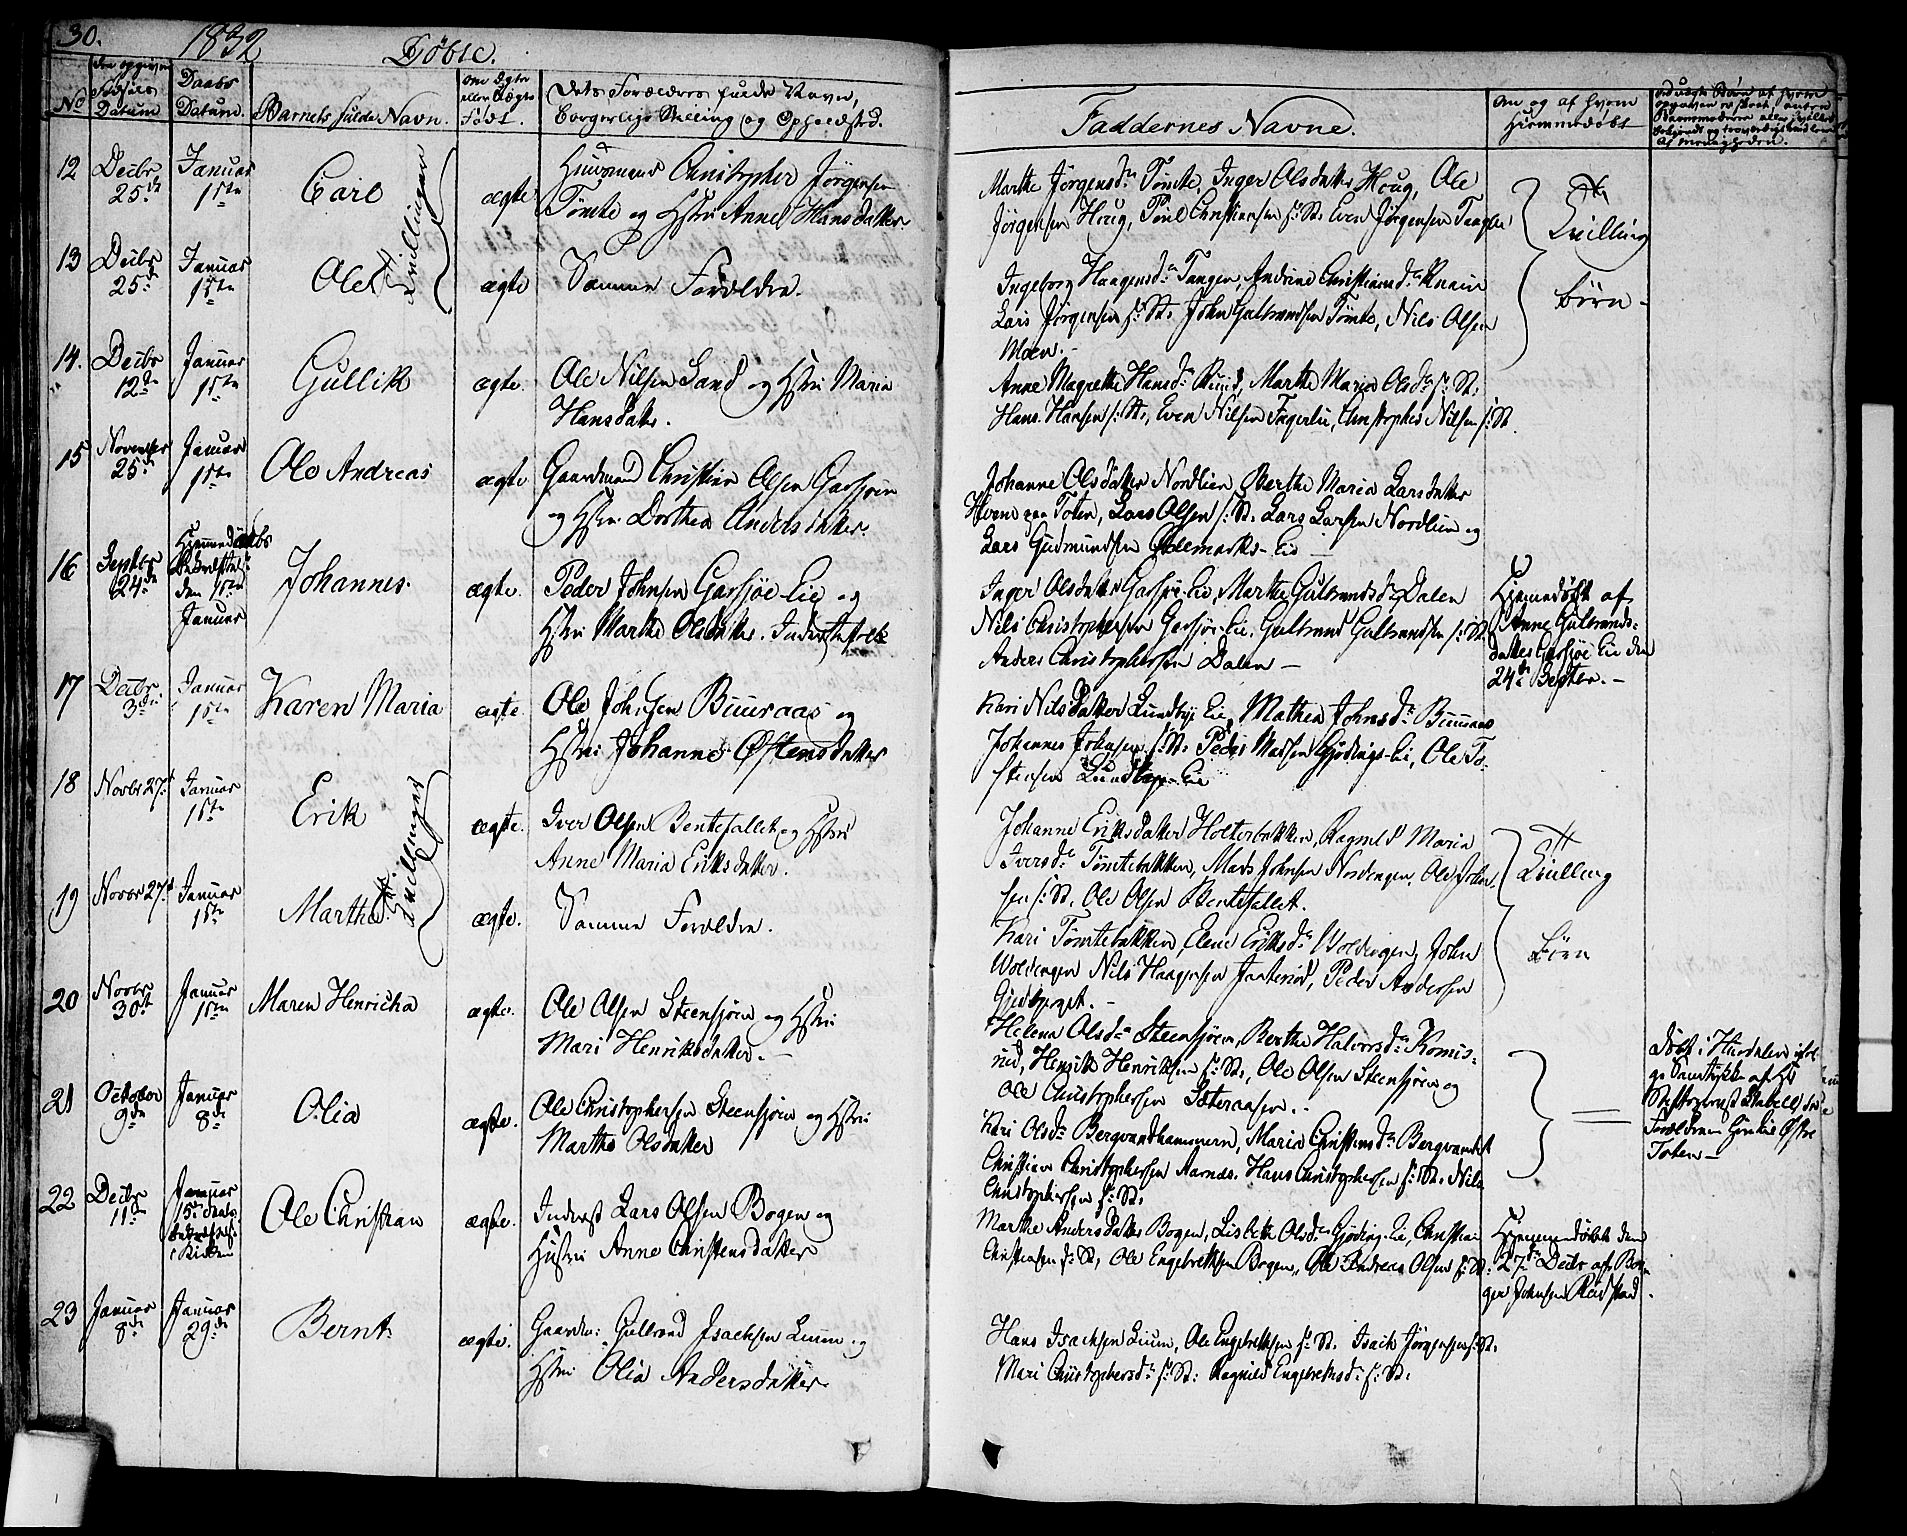 30. 1832 Døbte.
No
Den opgivne Fødsels Datum
Daabs Datum.
Barnets fulde Navn.
Om Ægte eller Uægte Født.
Dets Forældres fulde Navn,
Borgerlige Stilling og Opholdsted.
Faddernes Navne.
Om og af hvem
Hiemmedøbt
12 Decbr 25de Januar 15te Carl ægte
Huusmand Christopher Jørgensen
Tømte og Hstru Anne Hansdatter
Marthe Jørgensdr Tømte, Inger Olsdatter Houg, Ole
Jørgensen Houg, Poul Christiansen s: St. Even Jørgensen
Tvillinger
Tvilling
13 Decbr 25de Januar 15te Ole ægte Samme Forældre.
Ingeborg Haagensdr Tangen, Andrine Christiansdr
Lars Jørgensen s: St. John Gulbrandsen Tømte, Nils Olsen
Moen.
børn
14. Decbr 12te Januar 15te Gullik ægte.
Ole Nilsen Sand og Hstru Maria
Hansdatr.
Anne Magrethe Hansdr Ruud, Marthe Maria Olsdr s: St.
Hans Hansen s: St., Even Nilsen Fingerlie, Christopher Nilsen s: St.
15 November 25de Januar 15te Ole Andreas ægte
Gaardmand Christian Olsen Garsjøen
og Hstru Dorthea Andersdatter.
Johanne Olsdatter Nordlien, Berthe Maria Larsdatter
paa Toten, Lars Olsen s: St. Lars Larsen Nordlien og
Lars Gudmundsen Ødemarks-Eie
16 Septbr 24de
Hjemmedaabs
den 15te
Januar
Johannes. ægte.
Peder Johnsen Garsjøe-Eie og
Hstru Marthe Olsdatter. Inderstefolk
Inger Olsdatter Garsjøe-Eie, Marthe Gulbrandsdr Dalen
Nils Christophersen Garsjøe-Eie, Gulbrand Gulbrandsen s: St.
Anders Christophersen Dalen
Hjemmedøbt af
Anne Gulbrands-
datter Garsjøe Eie den
24de Septbr.
17 Decbr. 3die Januar 15te Karen Maria ægte.
Ole Johnsen Buuraas og
Hstru Johanne Østensdatter
Kari Nilsdatter Lundbye Eie, Mathea Johnsdr Buuraas
Johannes Johnsen s: St. Peder Madsen Gjødings-Eie, Ole To-
stensen Lundbye-Eie
18 Novbr 27de Januar 15te Erik ægte.
Iver Olsen Bentefallet og Hstru
Anne Maria Eriksdatter.
Johanne Eriksdatter Holterbakken, Ragnild Maria
Iversdr Tømtebakken, Mads Johnsen Nordengen, Ole John-
sen s: St. Ole Olsen Bentefallet.
Tvillinger
Tvilling
19 Novbr 27de Januar 15te Marthe ægte. Samme Forældre.
Kari Tømtebakken, Elene Eriksdr Woldengen, John
Woldengen Nils Haagensen Jonterud, Peder Andersen
Børn
20 Novbr 30te Januar 15te Maren Henricha ægte.
Ole Olsen Steensjøen og Hstru
Mari Henriksdatter.
Helena Olsdr Steensjøen, Berthe Halvorsdr Komis-
rud, Henrik Henriksen s: St., Ole Olsen Steensjøen og
Ole Christophersen Sæteraasen.
21 October 9de Januar 8de Olia ægte.
Ole Christophersen Steensjøen og Hstru
Marthe Olsdatter
Kari Olsdr Bergvandhammeren, Maria Christensdr Bergvandet
Christian Christophersen Aarnæs, Hans Christophersen s: St. Nils
Christophersen s: St.
Døbt i Hurdalen
Forældrene
Toten
22 Decbr 11te
Januar
15de
i Kirken
Ole Christian ægte.
Inderst Lars Olsen Bogen og
Hustru Anne Christensdatter
Marthe Andersdatter Bogen, Lisbeth Olsdr Gjøding-Eie, Christian
Christiansen s: St, Ole Engebretsen Bogen, Ole Andreas Olsen s: St.
Hjemmedøbt den
27de Decbr af
Johnsen
23 Januar 8de Januar 29de Bernt ægte.
Gaardm: Gulbrand Isachsen Luun og
Hstru Olia Andersdatter
Hans Isachsen Luun, Ole Engebretsen s: St. Isach Jørgensen s: St.
Mari Christophersdr s: St. Ragnild Engebretsdr s: St.